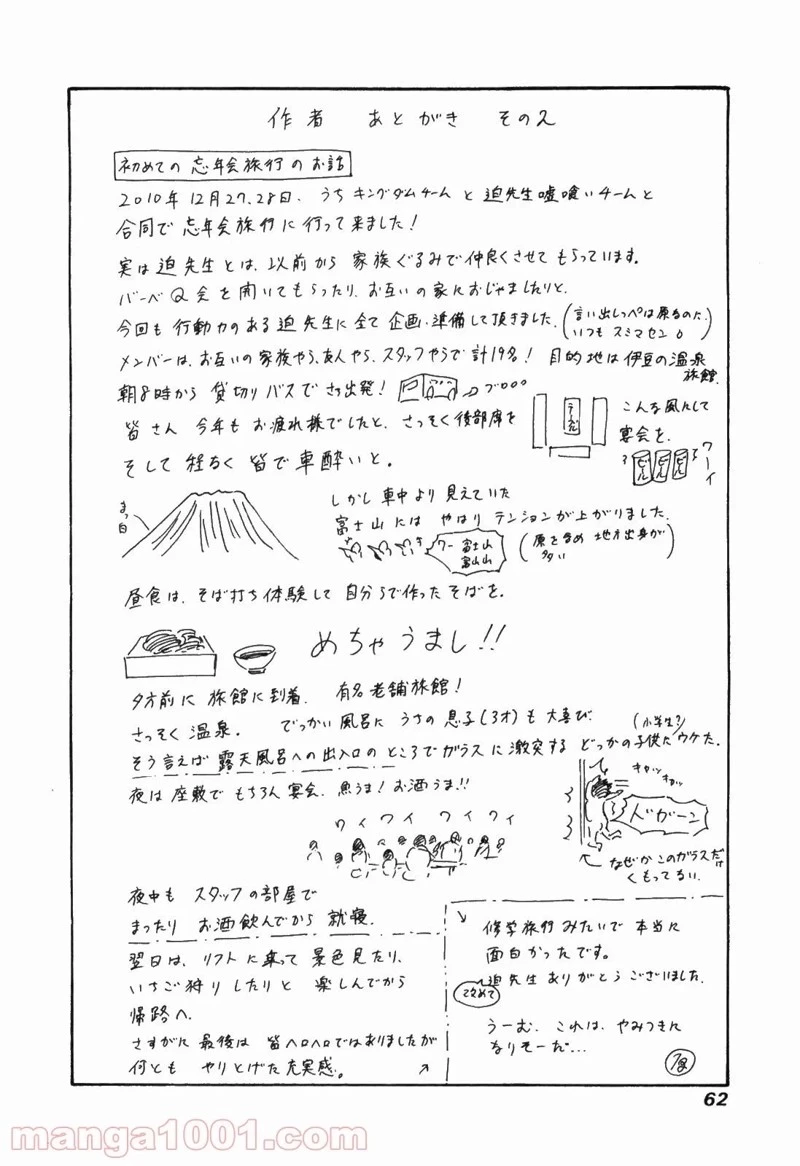 作者 あとがき その2
初めての 忘年会旅行のお話
2010年12月27、28日、うちキングダムチームと迫先生嘘喰いチームと
合同で忘年会旅行に行って来ました!
実は迫先生とは、以前から家族ぐるみで仲良くさせてもらっています。
バーベQ会を開いてもらったり、お互いの家におじゃましたりと、
今回も行動力のある迫先生に全て企画・準備して頂きました。(言い出しっぺは原なのだ、
いつもスミマセン)
メンバーは、お互いの家族やら、友人やら、スタッフやらで計19名! 目的地は伊豆の温泉
旅館
朝8時から貸切りバスでさっ出発!
ブロロロ
皆さん 今年も お疲れ様でしたと、さっそく後部席を
こんな風にして
宴会を、
ワーイ
テーブル
ビール
ビール
ビール
そして 程なく 皆で車酔いと。
まっ白
しかし車中より見えていた
富士山には やはり テンションが上がりました。
ワー 富士山
富山山
(原を含め 地方出身が
多い)
昼食は、そば打ち体験して 自分らで作ったそばを。
めちゃうまし!!
夕方前に 旅館に到着、有名老舗旅館!
さっそく温泉。 でっかい風呂に うちの息子(3才)も大喜び
そう言えば 露天風呂への出入口の ところでガラスに激突する どっかの子供(小学生?)にウケた。
夜は座敷で もちろん宴会、魚うま! お酒うま!!
キャッ
キャッ
ドガーン
なぜかこのガラスだけ
くもってるい
ワイワイ ワイワイ
夜中も スタッフの部屋で
まったり お酒飲んでから 就寝、
翌日は、リフトに乗って 景色見たり、
いちご狩りしたりと 楽しんでから
帰路へ。
さすがに 最後は 皆ヘロヘロではありましたが
何とも やりとげた充実感。
修学旅行みたいで 本当に
面白かったです。
改めて
迫先生ありがとうございました。
うーむ、これは、やみつきに
なりそーだ…
原
62
manga1001.com